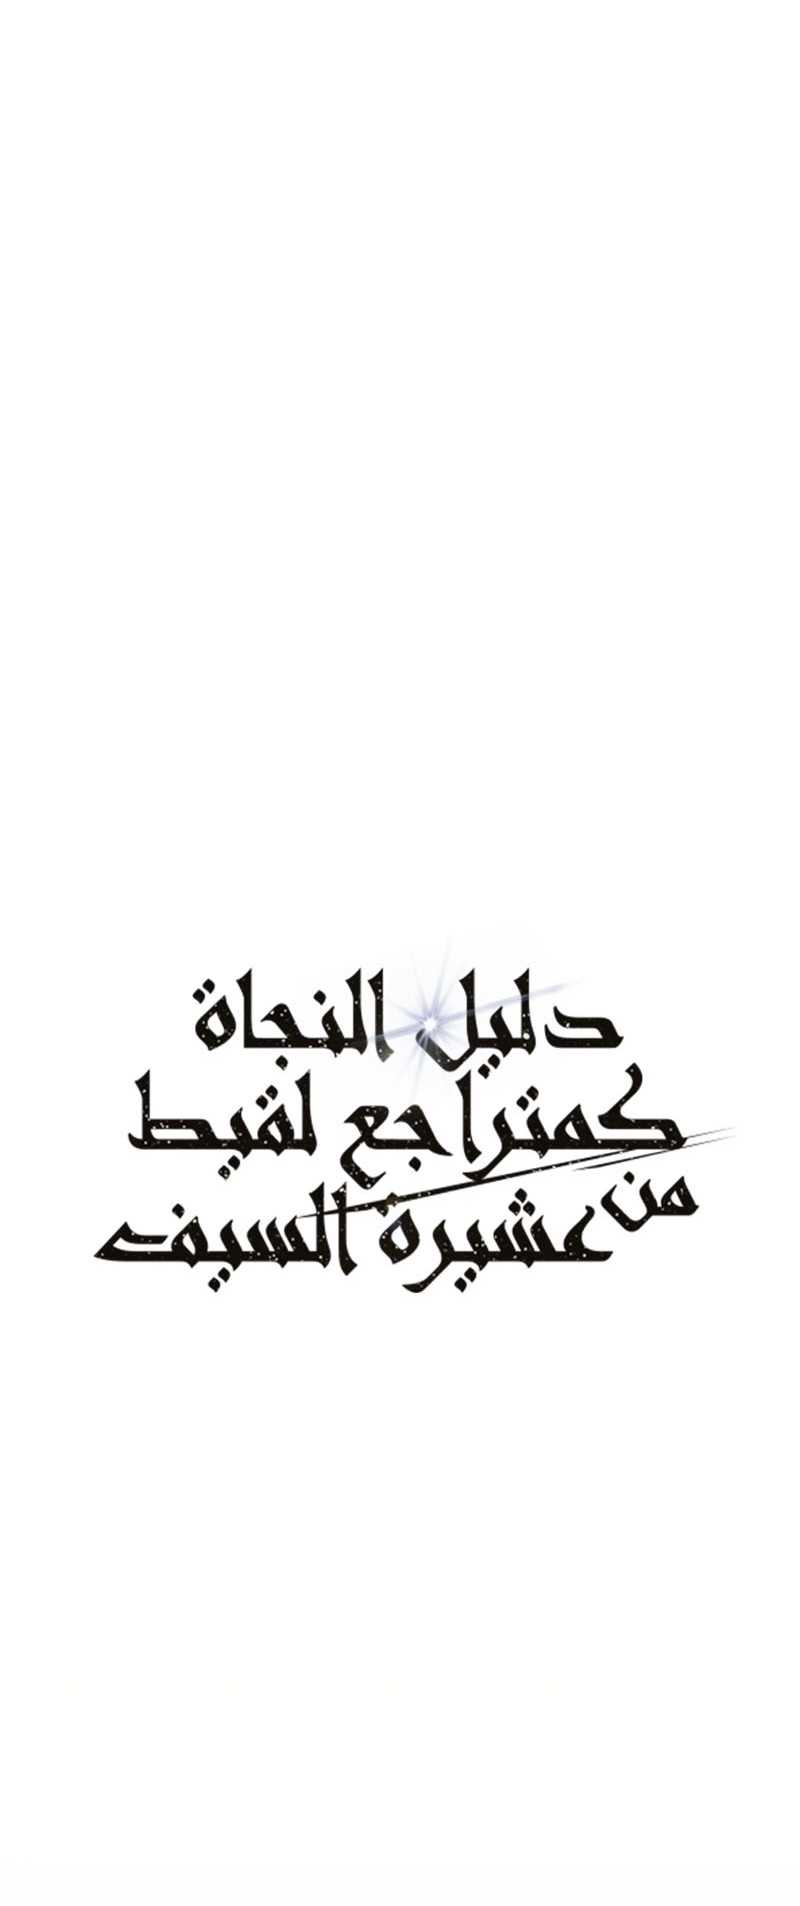 دليل النجاة
كمتراجع لقيط
من عشيرة السيف